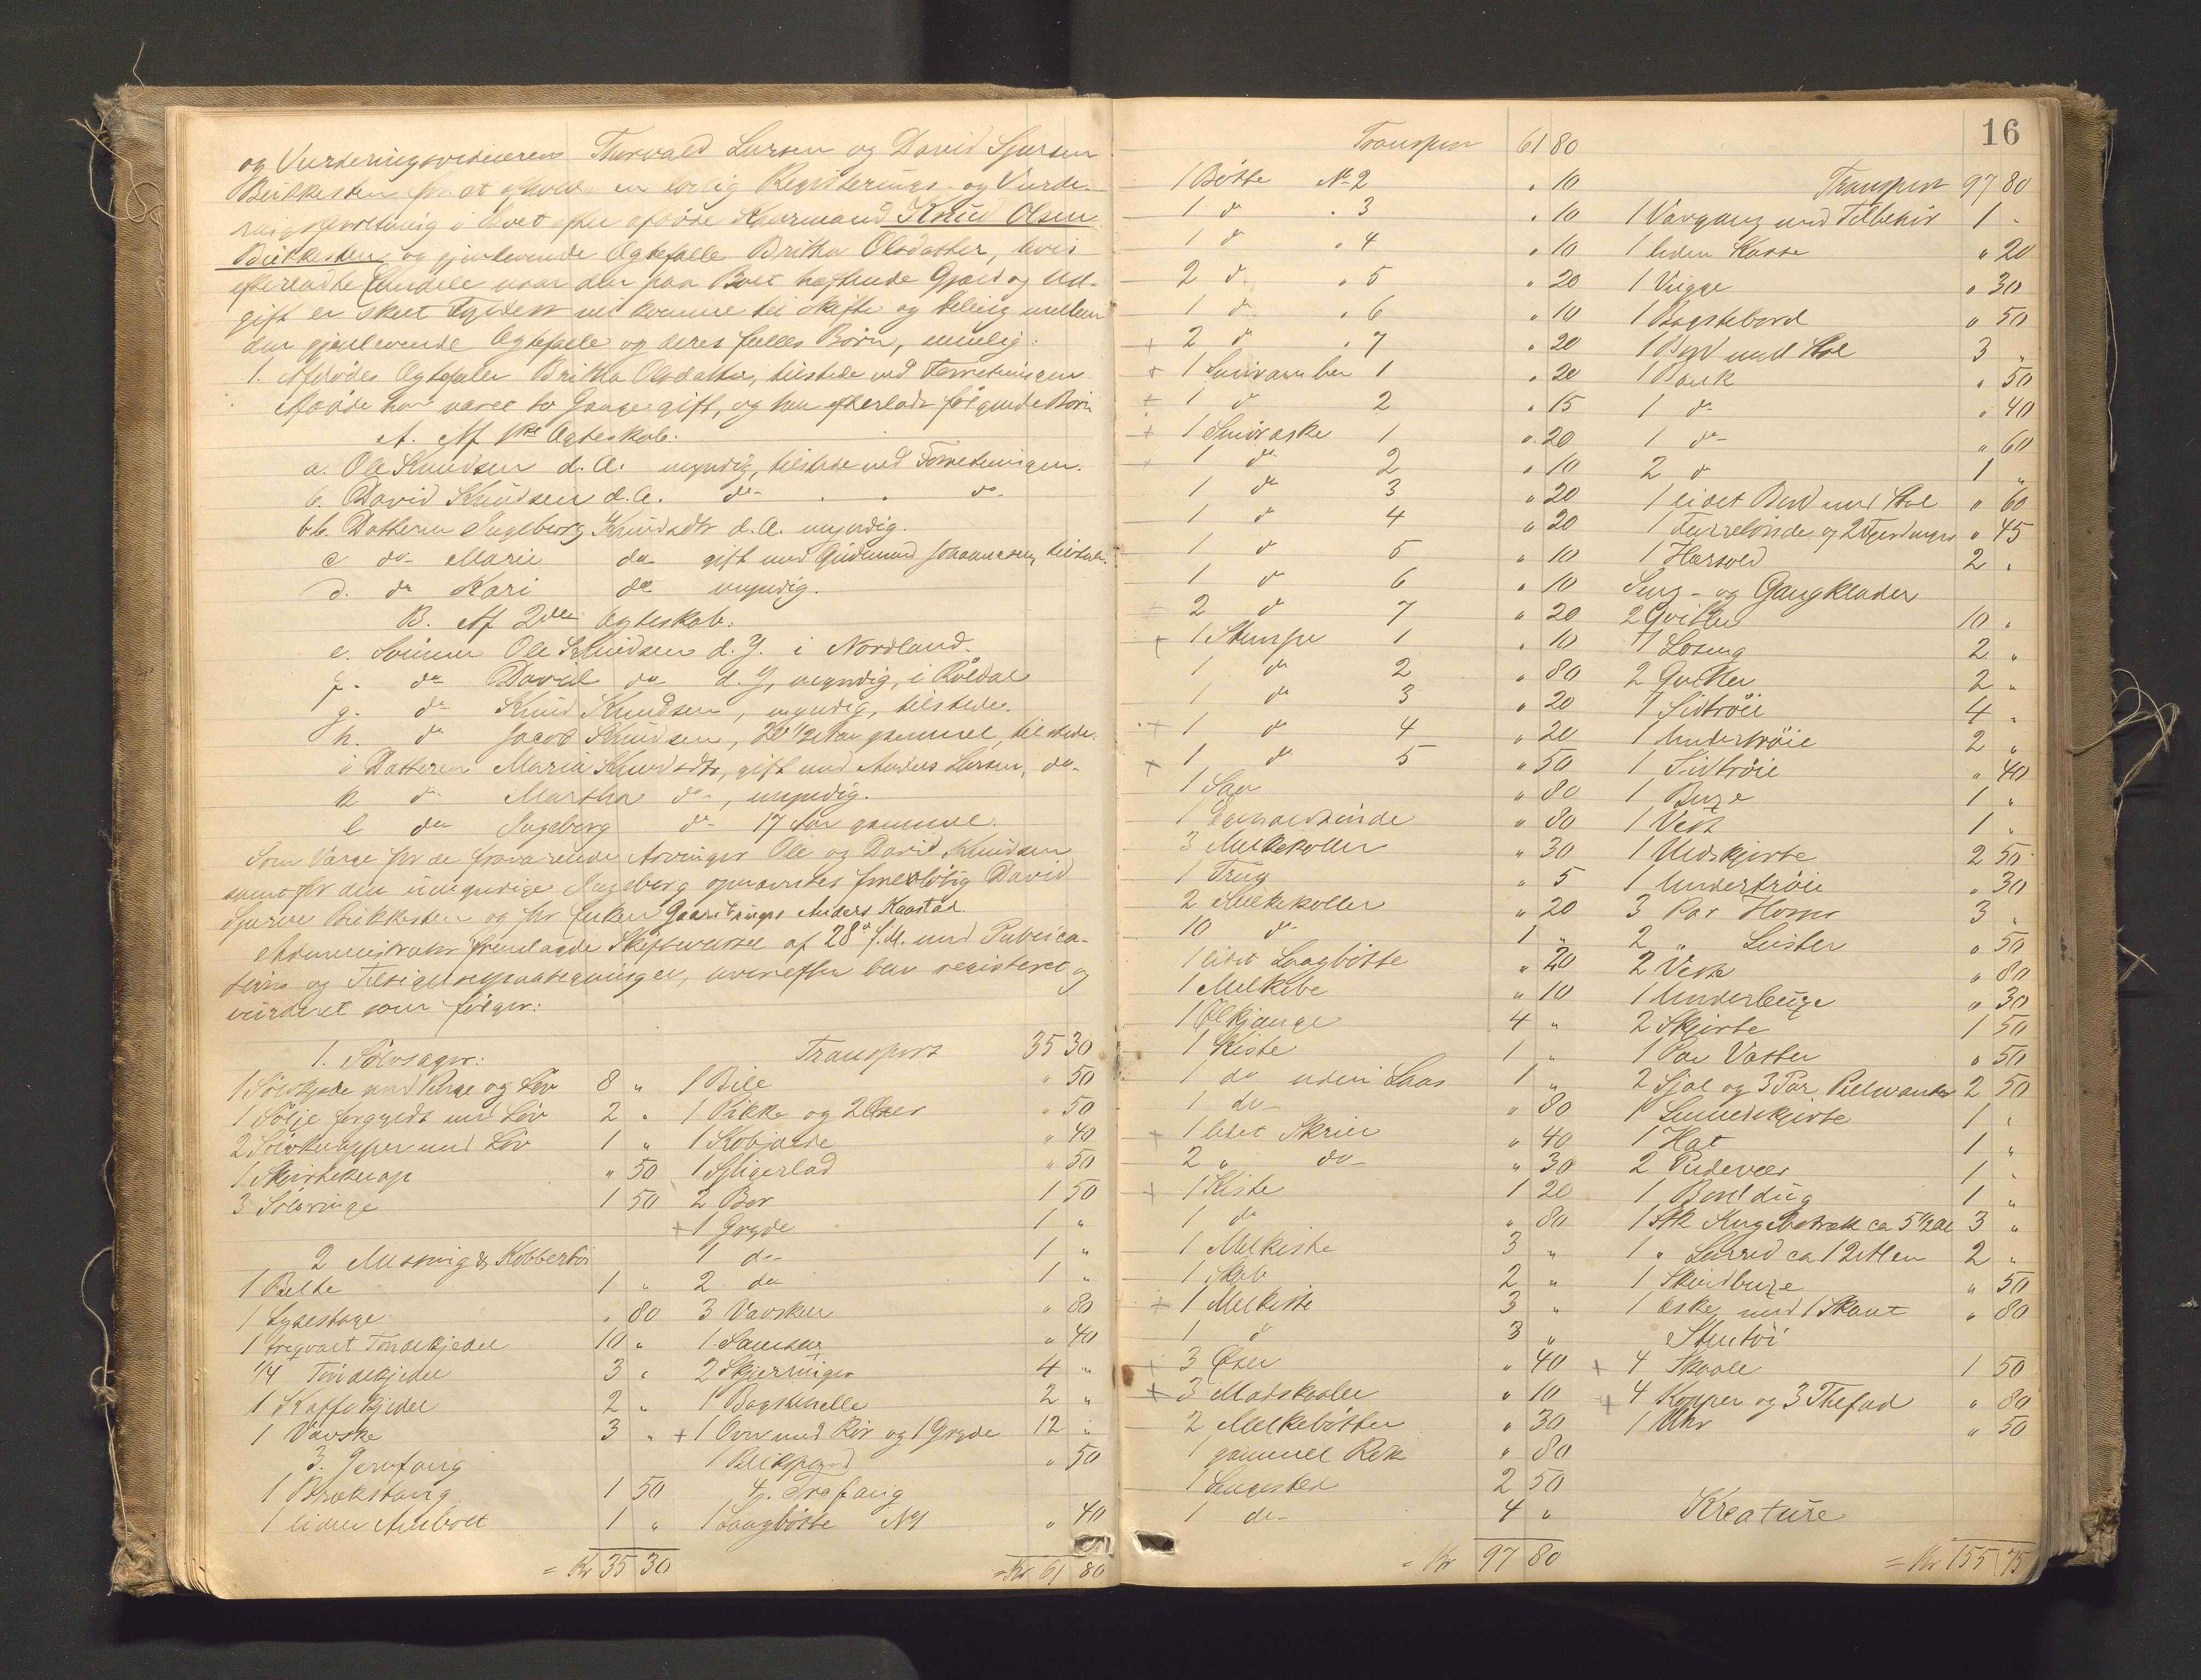 og Vurderingsvidnerne Thorvald Larsen og David Sjursen
Birkkesten for at afholde en lovlig Registrerings- og Vurde-
ringsforretning i Boet efter afdøde Kaarmand Knud Olsen
Birkkesten og gjenlevende Ægtefælle Britha Olsdatter, hvis
efterladte Eiendele naar den paa Boet heftende Gjæld og Ud-
gift er skeet Fyldest vil komme til Skifte og Deling mellem
den gjenlevende Ægtefælle og deres fælles Børn, nemlig:
1. Afdødes Ægtefælle Britha Olsdatter, tilstede ved Forretningen
Afdøde har været to Gange gift, og han efterlader følgende Børn
A. Af 1ste Ægteskab:
a. Ole Knudsen d. Æ. myndig, tilstede ved Forretningen.
b. David Knudsen d. Æ. do - . . do.
bb. Datteren Ingeborg Knudsdtr d. Æ. myndig.
c do- Marie do gift med Gudmund Johannesen, tilstede.
d. do Kari do myndig.
B. Af 2det Ægteskab:
e. Sønnen Ole Knudsen d. Y. i Nordland.
f. do David do d. Y, myndig, i Røldal
g. do Knud Knudsen, myndig, tilstede.
h. do Jacob Knudsen, 20 1/2 Aar gammel, tilstede.
i Datteren Maria Knudsdtr, gift med Anders Larsen, do-
k do Martha do-, myndig.
l do Ingeborg do- 17 Aar gammel.
Som Værge for de fraværende Arvinger Ole og David Knudsen
samt for den umyndige Ingeborg opnævntes foreløbig David
Sjursen Birkkesten og for Enken Gaardbruger Anders Kaastad
Administrator fremlagde Skiftevarsel af 28de f. M. med Publica-
tions og Tilsigelsespaategninger, hvorefter blev registreret og
vurderet som følger:
1. Sølvsager:
1 Sølvkjede med Penge og Løv 8 "
1 Sølje forgyldt med Løv 2 "
2 Sølvknapper med Løv 1 "
1 Skjorteknap " 50
3 Sølvringe 1 50
2 Messing & Kobbertøi
1 Belte 1 "
1 Lysestage " 80
1 trequart Tøndekjedel 10 "
1/4 Tøndekjedel 3 "
1 Kaffekjedel 2 "
1 Vavske 3 "
3. Jernfang
1 Brækstang 1 50
1 liden Ambolt 1 "
= Kr 35 30
Transport 35 30
1 Bile " 50
1 Pikke og 2 Øxer " 50
1 Kobjælde " 40
1 Sligerlad " 50
2 Bor 1 50
+ 1 Gryde 1 "
1 do- 1 "
2 do 1 "
3 Vavsker " 80
1 " 40
2 Skjerringer 4 "
1 Bagsthelle 2 "
+ 1 Ovn med Rør og 1 Gryde 12 "
1 Blikspand " 50
4. Træfang
1 Laagbøtte No 1 " 40
= Kr 61 80
16
Transport 61 80
1 Bøtte No 2 " 10
1 do " 3 " 10
1 do " 4 " 10
2 do " 5 " 20
1 do " 6 " 10
+ 2 do " 7 " 20
+ 1 Smøramber 1 " 20
+ 1 do 2 " 15
+ 1 Smøraske 1 " 20
+ 1 do 2 " 10
1 do 3 " 20
1 do 4 " 20
1 do 5 " 10
1 do 6 " 10
+ 2 do 7 " 20
+ 1 Stampe 1 " 10
1 do 2 " 80
1 do 3 " 20
+ 1 do 4 " 20
+ 1 do 5 " 50
1 Saa " 80
1 " 80
3 Melkekoller " 30
1 Trug " 5
2 Melkekoller " 20
10 do- 1 "
1 lidet Laagbøtte " 20
1 Melkebe " 10
1 Ølkjange 4 "
1 Kiste 1 "
1 do uden Laas 1 "
1 do- " 80
+ 1 lidet Skrin " 40
2 " do- " 30
+ 1 Kiste 1 20
1 do " 80
1 Melkiste 3 "
1 Skab 2 "
+ 1 Melkiste 3 "
1 do 3 "
+ 3 Øser " 40
+ 3 Madskaaler " 10
2 Melkebøtter " 30
1 gammel Rok " 80
1 Sengested 2 50
1 do- 4 "
= Kr 97 80
Transport 97 80
1 Vævgang med Tilbehør 1 "
1 liden Kasse " 20
1 Vugge " 30
1 Bagstebord " 50
1 Bord med Stol 3 "
1 Bænk " 50
1 do " 40
1 do- " 60
2 do 1 "
1 lidet Bord med Stol " 60
1 og 2 " 45
1 Hæsvold 2 "
Seng- og Gangklæder
2 Qvitler 10 "
1 Losing 2 "
2 Qvitler 2 "
1 Sidtrøie 4 "
1 Undertrøie 2 "
1 Sidtrøie " 40
1 Buxe 1 "
1 Vest 1 "
1 Uldskjorte 2 50
1 Undertrøie " 30
3 Par Hoser 3 "
2 " Leister " 50
2 Veste " 80
1 Underbuxe " 30
2 Skjorte 1 50
1 Par Vatter " 50
2 Sjal og 3 Par Pulsvanter 2 50
1 Linnedskjorte 1 "
1 Hat 1 "
2 Pudevær 1 "
1 Borddug 1 "
1 Stk ca 5 1/2 Al 3 "
1 " Lærred ca 12 Alen 2 "
1 Skindbuxe " 50
1 Æske med 1 Skaut " 80
Stentøi
+ 4 Skaale 1 50
+ 4 Kopper og 3 Thefad " 80
1 Uhr " 50
Kreature
= Kr 155 75